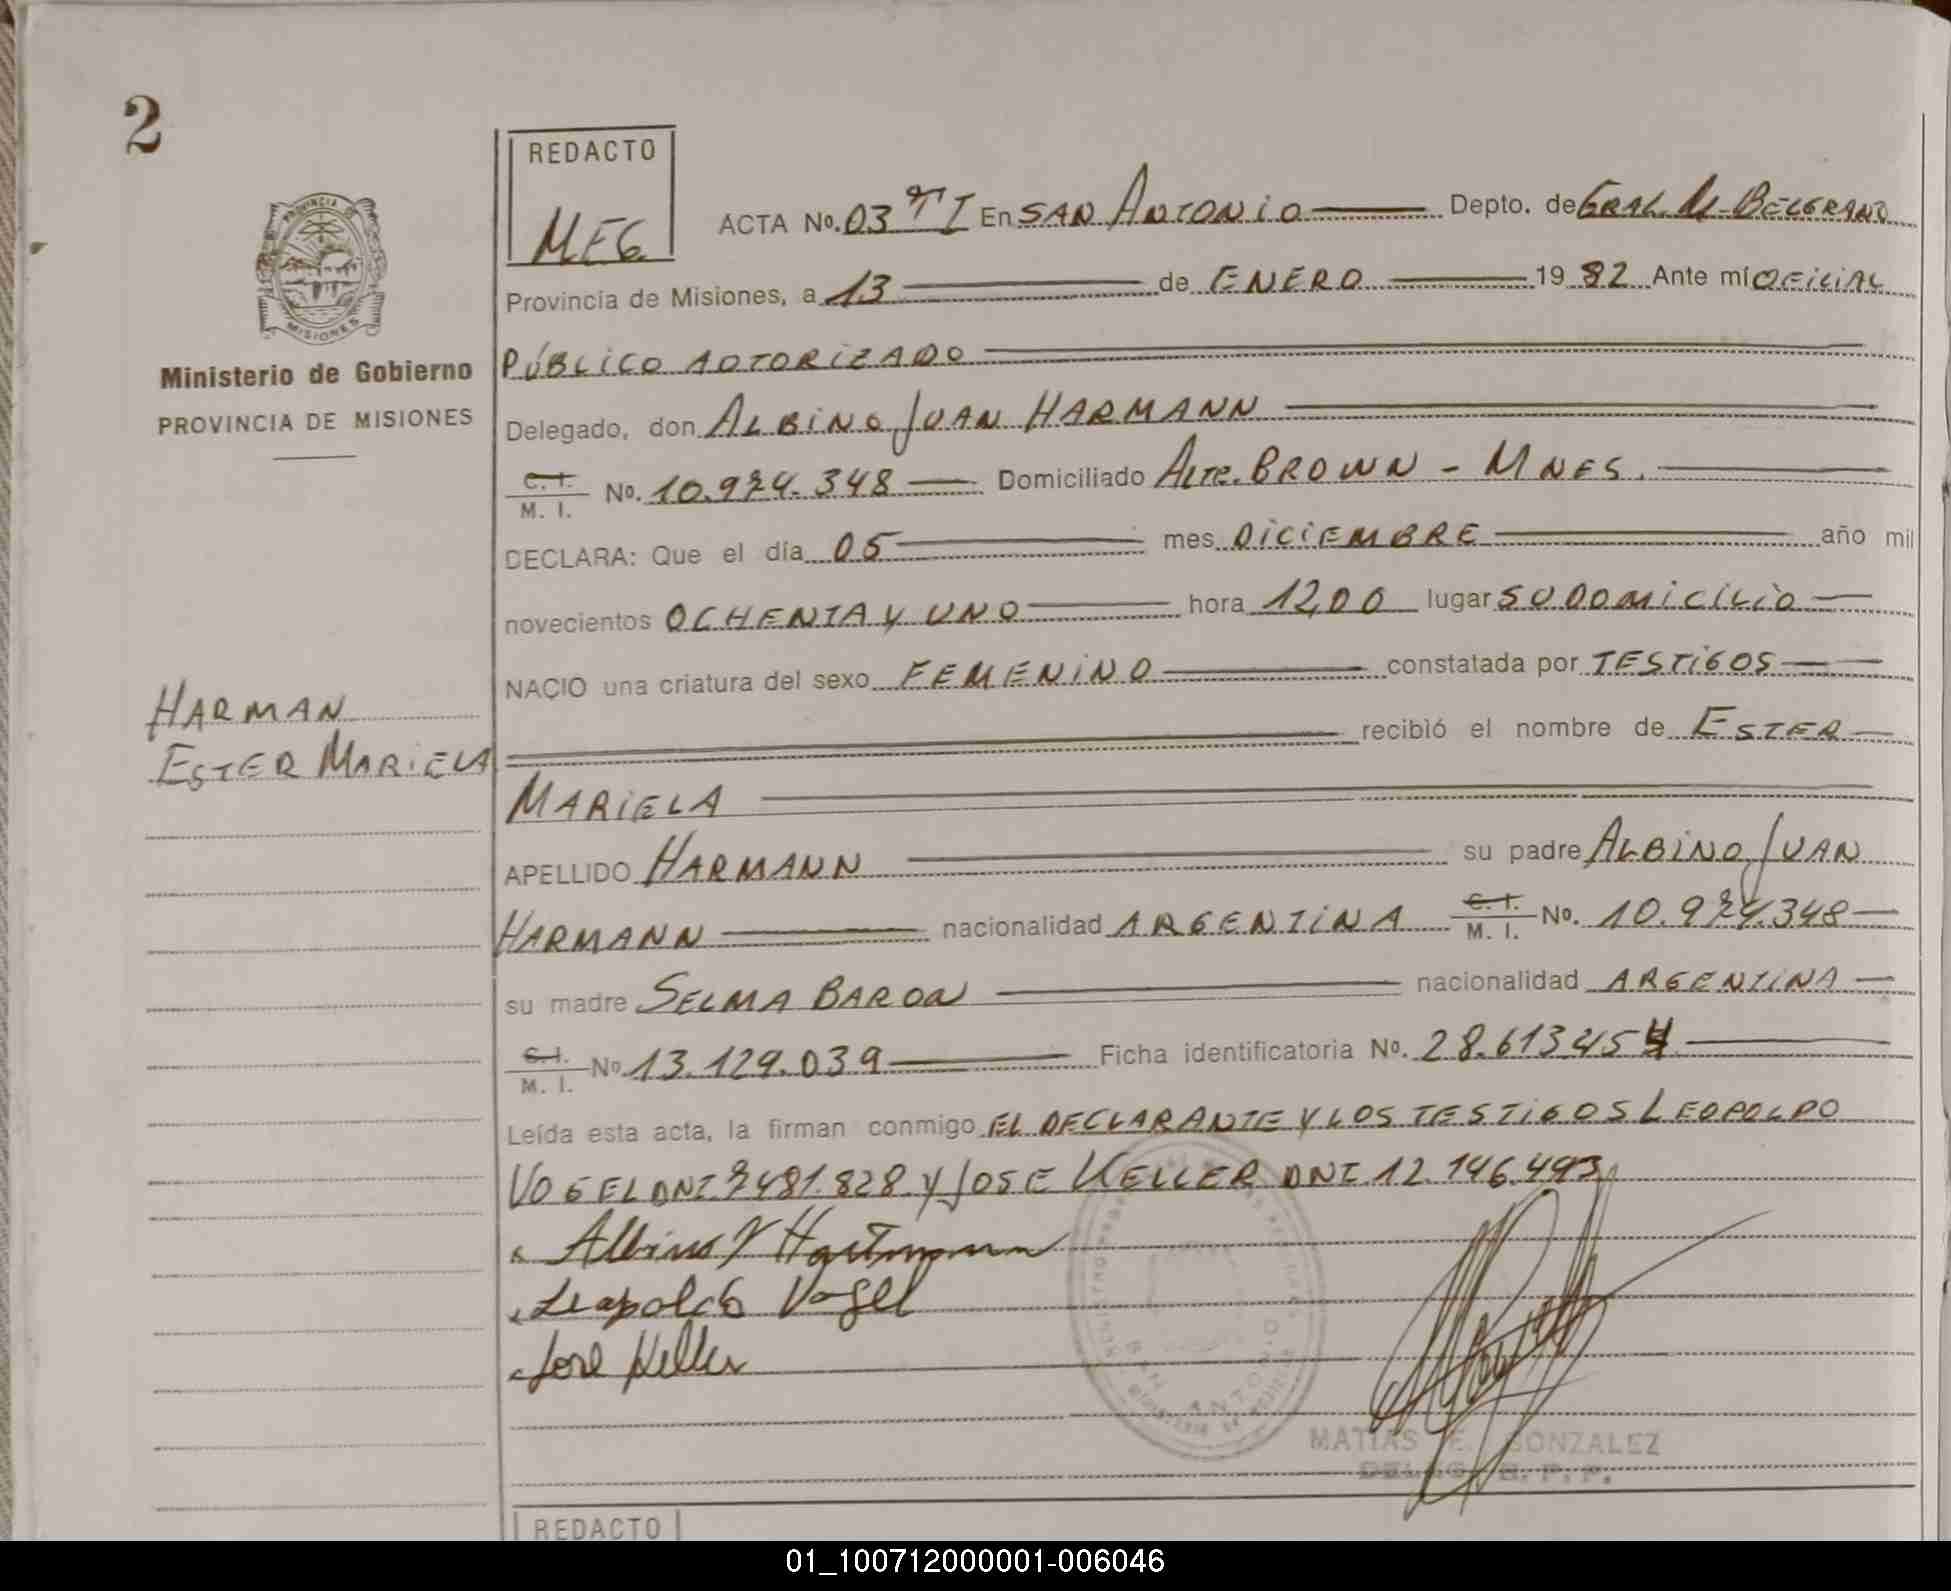 2
REDACTO
MEG
ACTA No. 03 TI En SAN ANTONIO Depto. de GRAL. M. BELGRANO
Provincia de Misiones, a 13 de ENERO 1982 Ante mí OFICIAL
PÚBLICO AUTORIZADO
Delegado, don ALBINO JUAN HARMANN
C. I. M. I. No. 10.974.348 Domiciliado Alte. BROWN - MNES.
DECLARA: Que el día 05 mes DICIEMBRE año mil
novecientos OCHENTA Y UNO hora 12,00 lugar SU DOMICILIO
NACIO una criatura del sexo FEMENINO constatada por TESTIGOS
recibió el nombre de ESTER
MARIELA
APELLIDO HARMANN su padre ALBINO JUAN
HARMANN nacionalidad ARGENTINA C. I. M. I. No. 10.974.348
su madre SELMA BARON nacionalidad ARGENTINA
C. I. M. I. No 13.129.039 Ficha identificatoria No. 28.613454
Leída esta acta, la firman conmigo EL DECLARANTE Y LOS TESTIGOS LEOPOLDO
VOGEL DNI 7481.828 Y JOSE KELLER DNI 12.146.493
Albino J Hartmann
Leopoldo Vogel
José Keller
SAN ANTONIO
MATIAS E. GONZALEZ
DELEG. R. P. P.
PROVINCIA DE MISIONES
Ministerio de Gobierno
PROVINCIA DE MISIONES
HARMAN
ESTER MARIELA
REDACTO
01_100712000001-006046